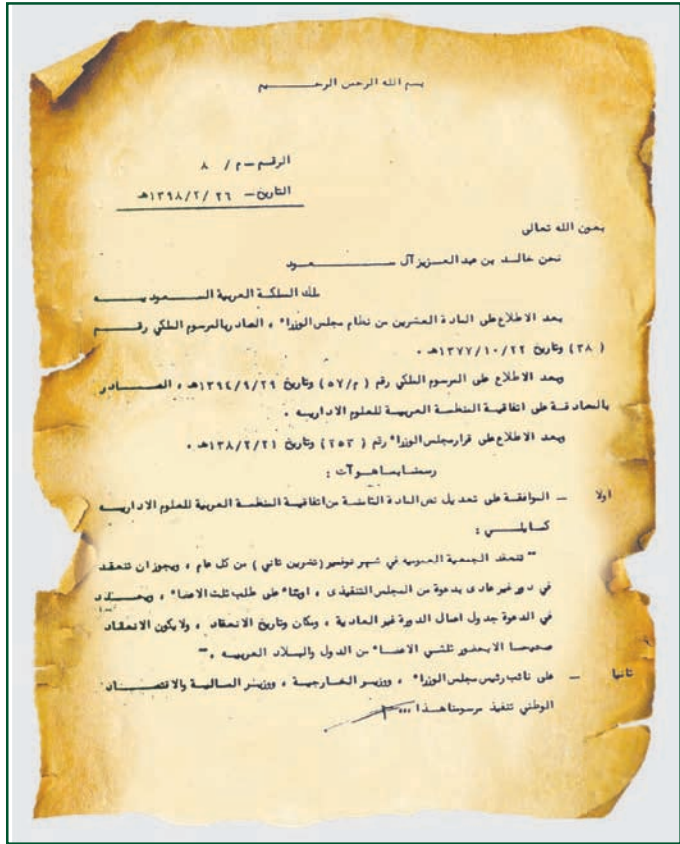 بسم الله الرحمن الرحيم
الرقم – م / ٨
التاريخ – ٢٦ /٢/ ١٣٩٨هـ
بعون الله تعالى
نحن خالد بن عبد العزيز آل سعود
ملك المملكة العربية السعودية
بعد الاطلاع على المادة العشرين من نظام مجلس الوزراء ، الصادر بالمرسوم الملكي رقم
( ٣٨) وتاريخ ١٣٧٧/١٠/٢٢هـ .
وبعد الاطلاع على المرسوم الملكي رقم ( م/٥٧) وتاريخ ١٣٩٤/٩/٢٩هـ ، الصادر
بالمصادقة على اتفاقية المنظمة العربية للعلوم الادارية .
وبعد الاطلاع على قرار مجلس الوزراء رقم ( ٢٥٣) وتاريخ ١٣٨/٢/٢١هـ .
رسمنا بما هو آت :
اولا – الموافقة على تعديل نص المادة الثامنة من اتفاقية المنظمة العربية للعلوم الادارية
كما يلي :
" تنعقد الجمعية العمومية في شهر نوفمبر (تشرين ثاني ) من كل عام ، ويجوز ان تنعقد
في دور غير عادى بدعوة من المجلس التنفيذى ، او بناء على طلب ثلث الاعضاء ، ويحدد
في الدعوة جدول اعمال الدورة غير العادية ، ومكان وتاريخ الانعقاد ، ولا يكون الانعقاد
صحيحا الا بحضور ثلثي الاعضاء من الدول والبلاد العربيه . "
ثانيا – على نائب رئيس مجلس الوزراء ، ووزير الخارجية ، ووزير المالية والاقتصاد
الوطني تنفيذ مرسومنا هذا ،،،